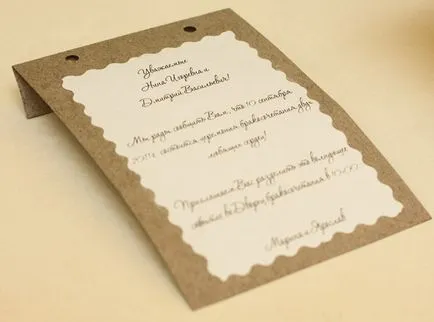 Уважаемые
Нина Игоревна и
Дмитрий Васильевич!
Мы рады сообщить Вам, что 10 сентября
2011г. состоится церемония бракосочетания двух
любящих сердец!
Приглашаем Вас разделить это волнующее
событие во Дворце бракосочетания в 10:00
Марина и Ярослав